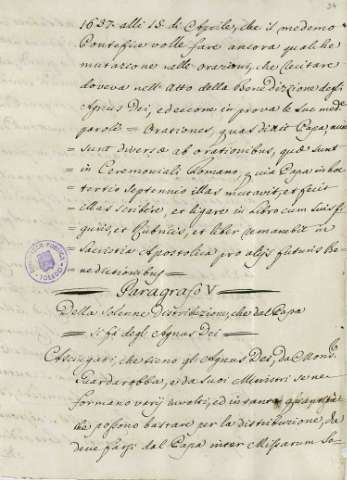 1697. alli 18. di Aprile, che il medemo
Pontefice volle fare ancora qualche
mutazione nelle orazioni, che recitare
doveva nell'Atto della Benedizzione degli
Agnus Dei, ed eccone in prova le sue med.e
parole = Orationes, quas dixit Papa,
= sunt diversæ ab orationibus, quæ sunt
= in Ceremoniali Romano, quia Papa in hoc
= tertio Septennio illas mutavit, et fecit
= illas scribere, et ligare in libro cum suis fi-
= guris, et Rubricis, et liber remanebit in
= Sacristia Apostolica pro alijs futuris Be-
= nedictionibus =
Paragrafo V
Della Solenne Distribuzione, che dal Papa
si fà degli Agnus Dei
Asciugati, che sieno gli Agnus Dei, da Mons.r
Guardarobba, e da suoi Ministri se ne
formano varij involti, ed in tanta
che possono bastare per la distribuzione, da
farsi dal Papa inter Missarum So-
BIBLIOTECA PUBLICA
TOLEDO